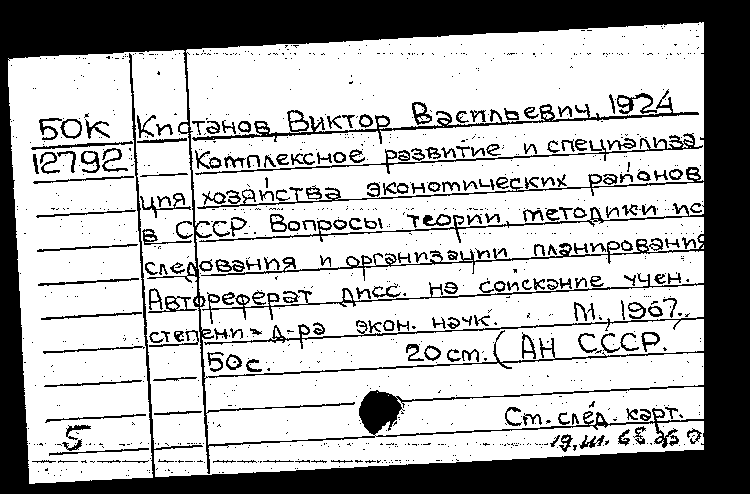 50К Кистанов, Виктор Васильевич, 1924
12792 Комплексное развитие и специализа-
ция хозяйства экономических районов
в СССР. Вопросы теории, методики ис
следования и организации планирования
Автореферат дисс. на соискание учен.
степени д-ра экон. наук. М., 1967.
50 с. 20 см. (АН СССР.
Ст. след. карт.
5 19.III.68